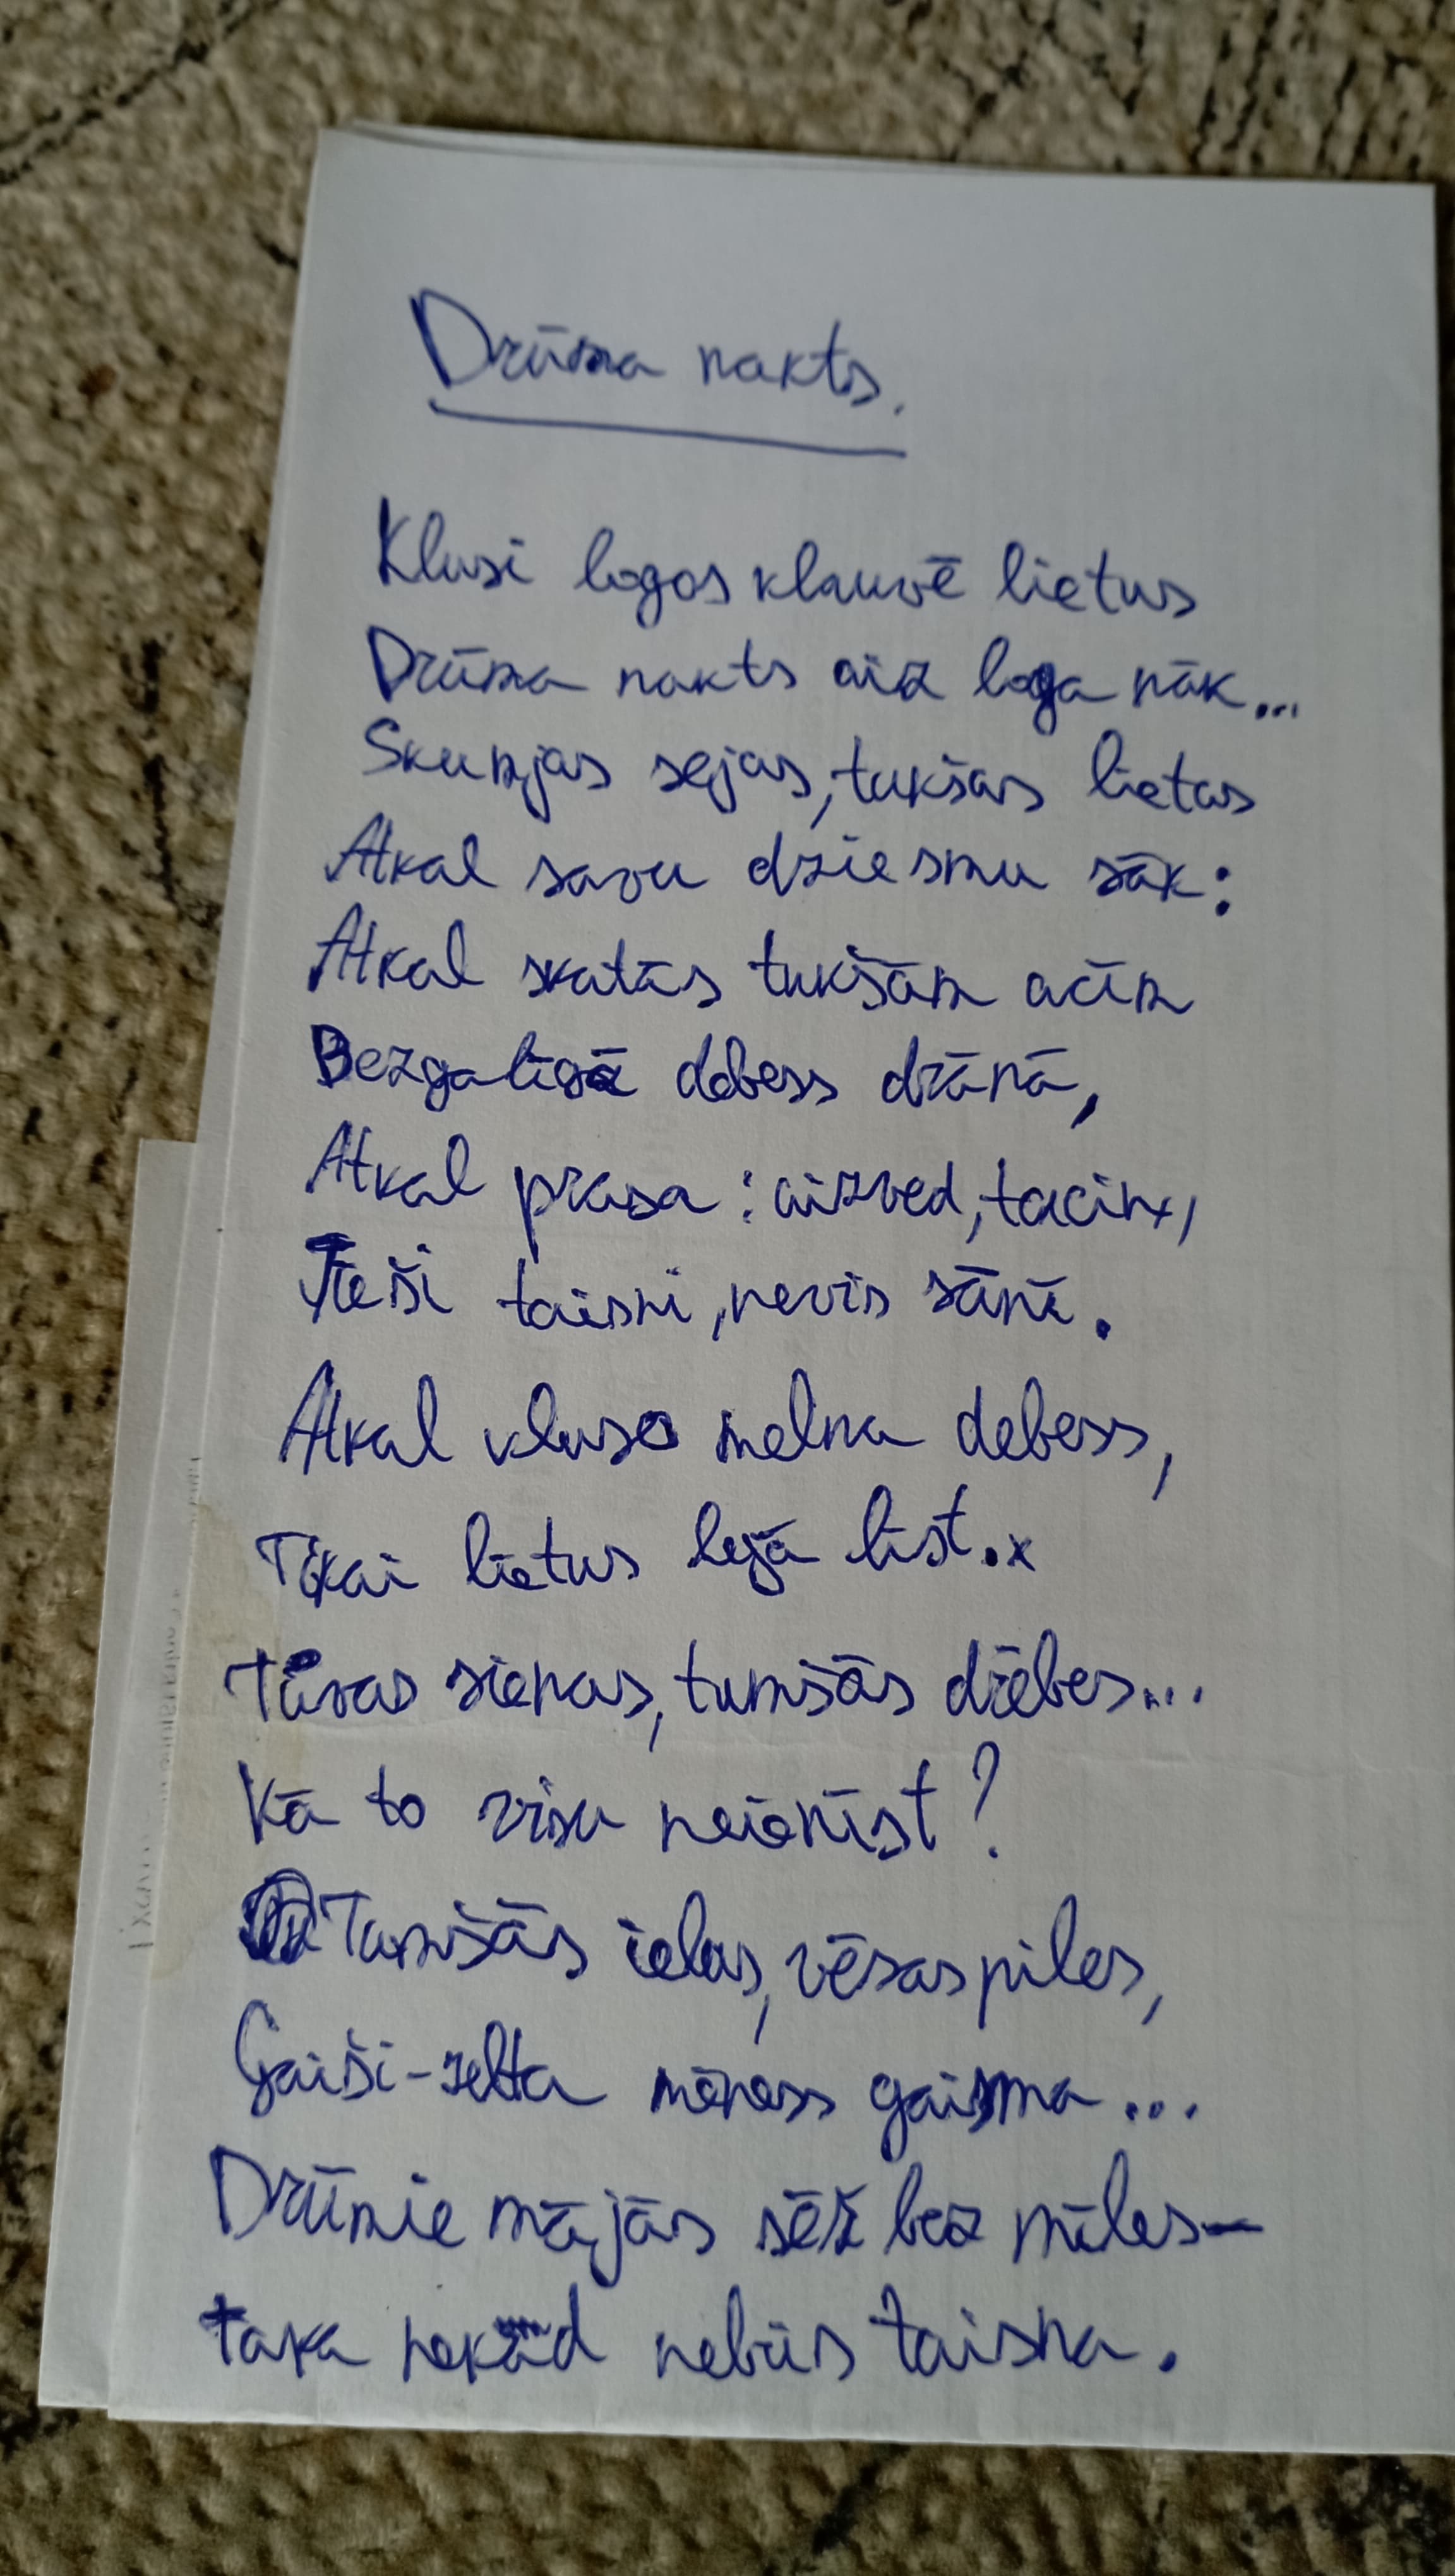 Drūma nakts.
Klusi logos klauvē lietus
Drūma nakts aiz loga nāk...
Skumjas sejas, tukšas lietas
Atkal savu dziesmu sāk:
Atkal skatās tukšām acīm
Bezgalīgā debess drānā,
Atkal prasa: aizved, taciņ,
Tieši taisni, nevis sānā.
Atkal kluso melna debess,
Tikai lietus lejā līst.x
Tāvas sienas, tumšās drēbes...
Kā to visu neienīst?
Tumšās ielas, vēsas piles,
Gaiši-zelta mēness gaisma...
Drūmie mājās sēž bez mīles-
taka nekad nebūs taisna.